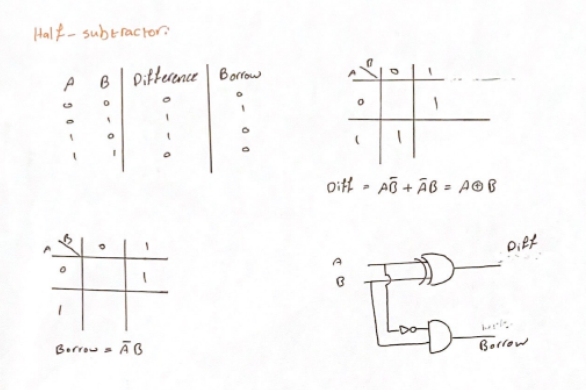 Half-subtractor:
A B Difference Borrow
0 0 0 0
0 1 1 1
1 0 1 0
1 1 0 0
A B 0 1
0 1
1 1
Diff = AB̅ + A̅B = A⊕B
A B 0 1
0 1
1
Borrow = A̅B
A
B
Diff
Borrow